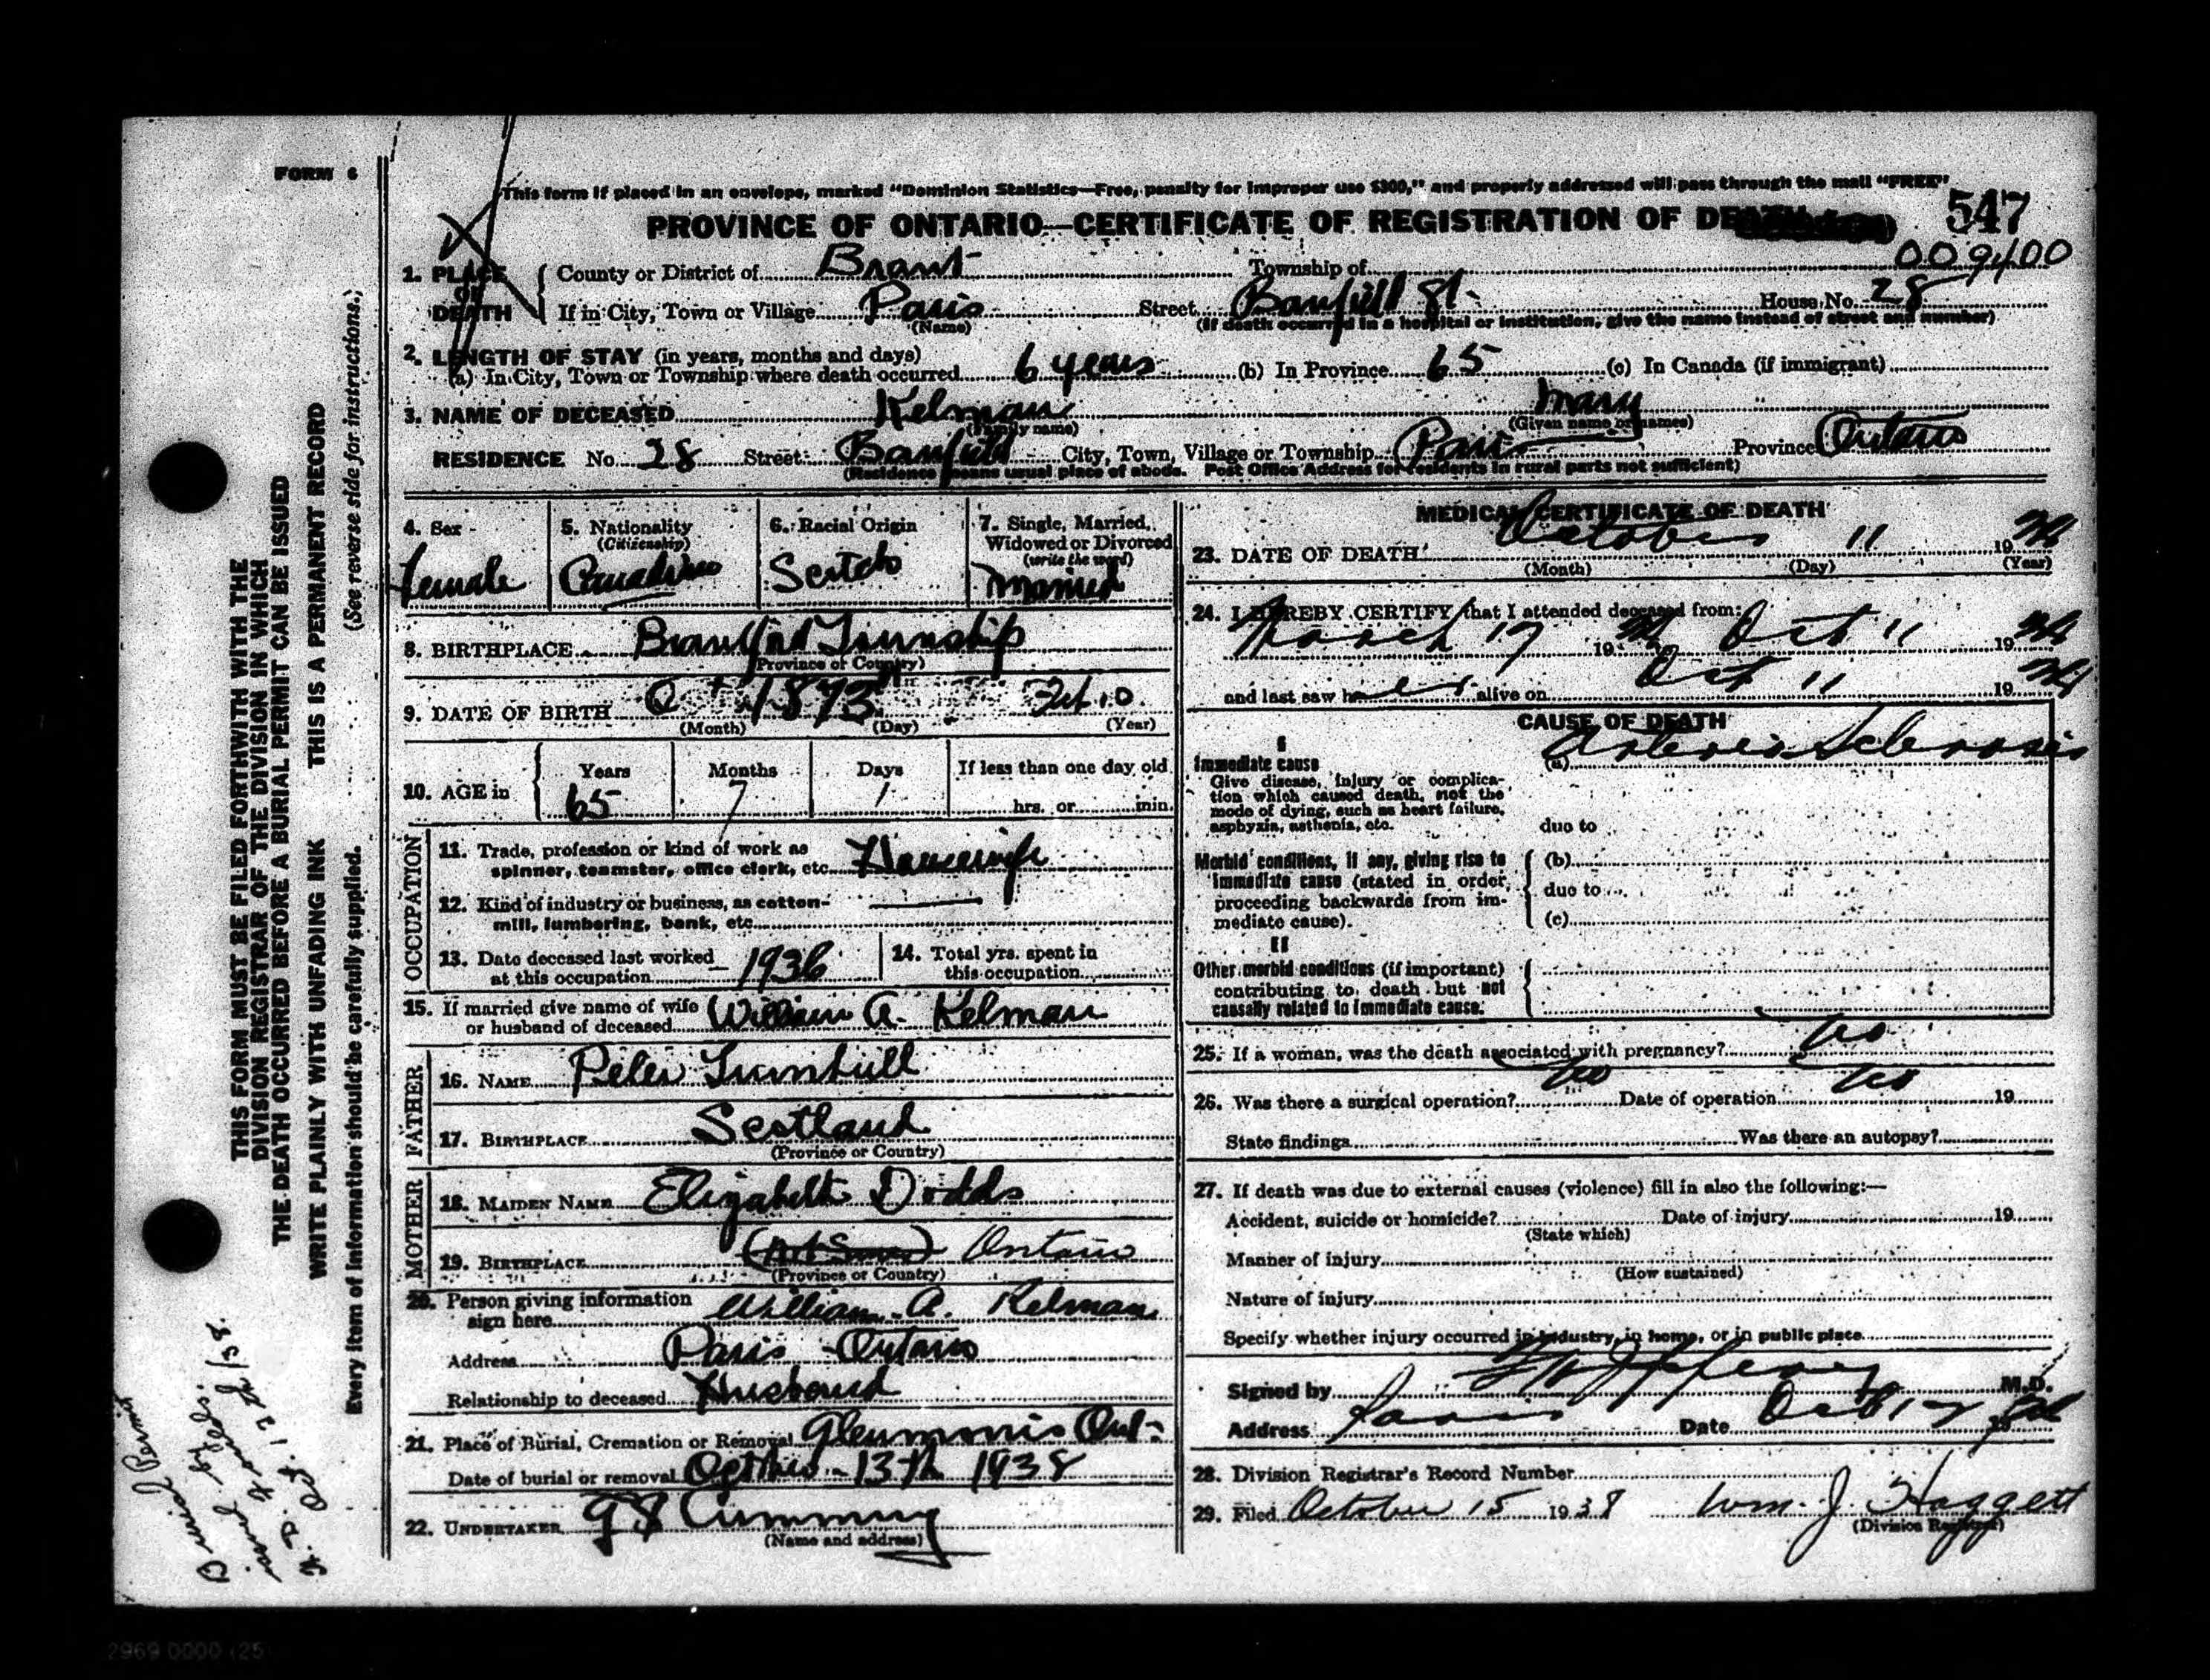 FORM 6
This form if placed in an envelope, marked "Dominion Statistics—Free, penalty for improper use $300," and properly addressed will pass through the mail "FREE"
PROVINCE OF ONTARIO—CERTIFICATE OF REGISTRATION OF DE
547
009400
1. PLACE OF DEATH { County or District of Brant Township of
If in City, Town or Village Paris Street Banfield St. House No. 28
(Name) (If death occurred in a hospital or institution, give the name instead of street and number)
2. LENGTH OF STAY (in years, months and days)
(a) In City, Town or Township where death occurred 6 years (b) In Province 65 (c) In Canada (if immigrant)
3. NAME OF DECEASED Kelman Mary
(Family name) (Given name or names)
RESIDENCE No. 28 Street Banfield City, Town, Village or Township Paris Province Ontario
(Residence means usual place of abode. Post Office Address for residents in rural parts not sufficient)
4. Sex
Female
5. Nationality
(Citizenship)
Canadian
6. Racial Origin
Scotch
7. Single, Married, Widowed or Divorced
(write the word)
Married
8. BIRTHPLACE Brantford Township
(Province or Country)
9. DATE OF BIRTH 1873 Feb 10
(Month) (Day) (Year)
10. AGE in { Years Months Days If less than one day old
65 7 1 hrs. or min.
OCCUPATION
11. Trade, profession or kind of work as
spinner, teamster, office clerk, etc. Housewife
12. Kind of industry or business, as cotton-
mill, lumbering, bank, etc.
13. Date deceased last worked
at this occupation 1936
14. Total yrs. spent in
this occupation
15. If married give name of wife
or husband of deceased William A. Kelman
FATHER
16. NAME Peter Turnbull
17. BIRTHPLACE Scotland
(Province or Country)
MOTHER
18. MAIDEN NAME Elizabeth Dodds
19. BIRTHPLACE Ontario
(Province or Country)
20. Person giving information
sign here William A. Kelman
Address Paris Ontario
Relationship to deceased Husband
21. Place of Burial, Cremation or Removal Glenmorris Ont.
Date of burial or removal October 13th 1938
22. UNDERTAKER Cumming
(Name and address)
MEDICAL CERTIFICATE OF DEATH
23. DATE OF DEATH October 11 19 38
(Month) (Day) (Year)
24. I HEREBY CERTIFY that I attended deceased from:
March 17 19 38 Oct 11 19 38
and last saw her alive on Oct 11 19 38
CAUSE OF DEATH
I
Immediate cause (a) Arterio Sclerosis
Give disease, injury or complica-
tion which caused death, not the
mode of dying, such as heart failure,
asphyxia, asthenia, etc.
due to
Morbid conditions, if any, giving rise to { (b)
immediate cause (stated in order, due to
proceeding backwards from im-
mediate cause). (c)
II
Other morbid conditions (if important)
contributing to death but not
causally related to immediate cause.
25. If a woman, was the death associated with pregnancy? No
26. Was there a surgical operation? No Date of operation No 19
State findings Was there an autopsy?
27. If death was due to external causes (violence) fill in also the following:—
Accident, suicide or homicide? Date of injury 19
(State which)
Manner of injury
(How sustained)
Nature of injury
Specify whether injury occurred in industry, in home, or in public place
Signed by M.D.
Address Paris Date Oct 12 19 38
28. Division Registrar's Record Number
29. Filed October 15 1938 Wm. J. Haggett
(Division Registrar)
THIS FORM MUST BE FILED FORTHWITH WITH THE
DIVISION REGISTRAR OF THE DIVISION IN WHICH
THE DEATH OCCURRED BEFORE A BURIAL PERMIT CAN BE ISSUED
WRITE PLAINLY WITH UNFADING INK THIS IS A PERMANENT RECORD
Every item of information should be carefully supplied. (See reverse side for instructions.)
Burial Permit
issued by
Oct. 12th/38.
2969 0000 125